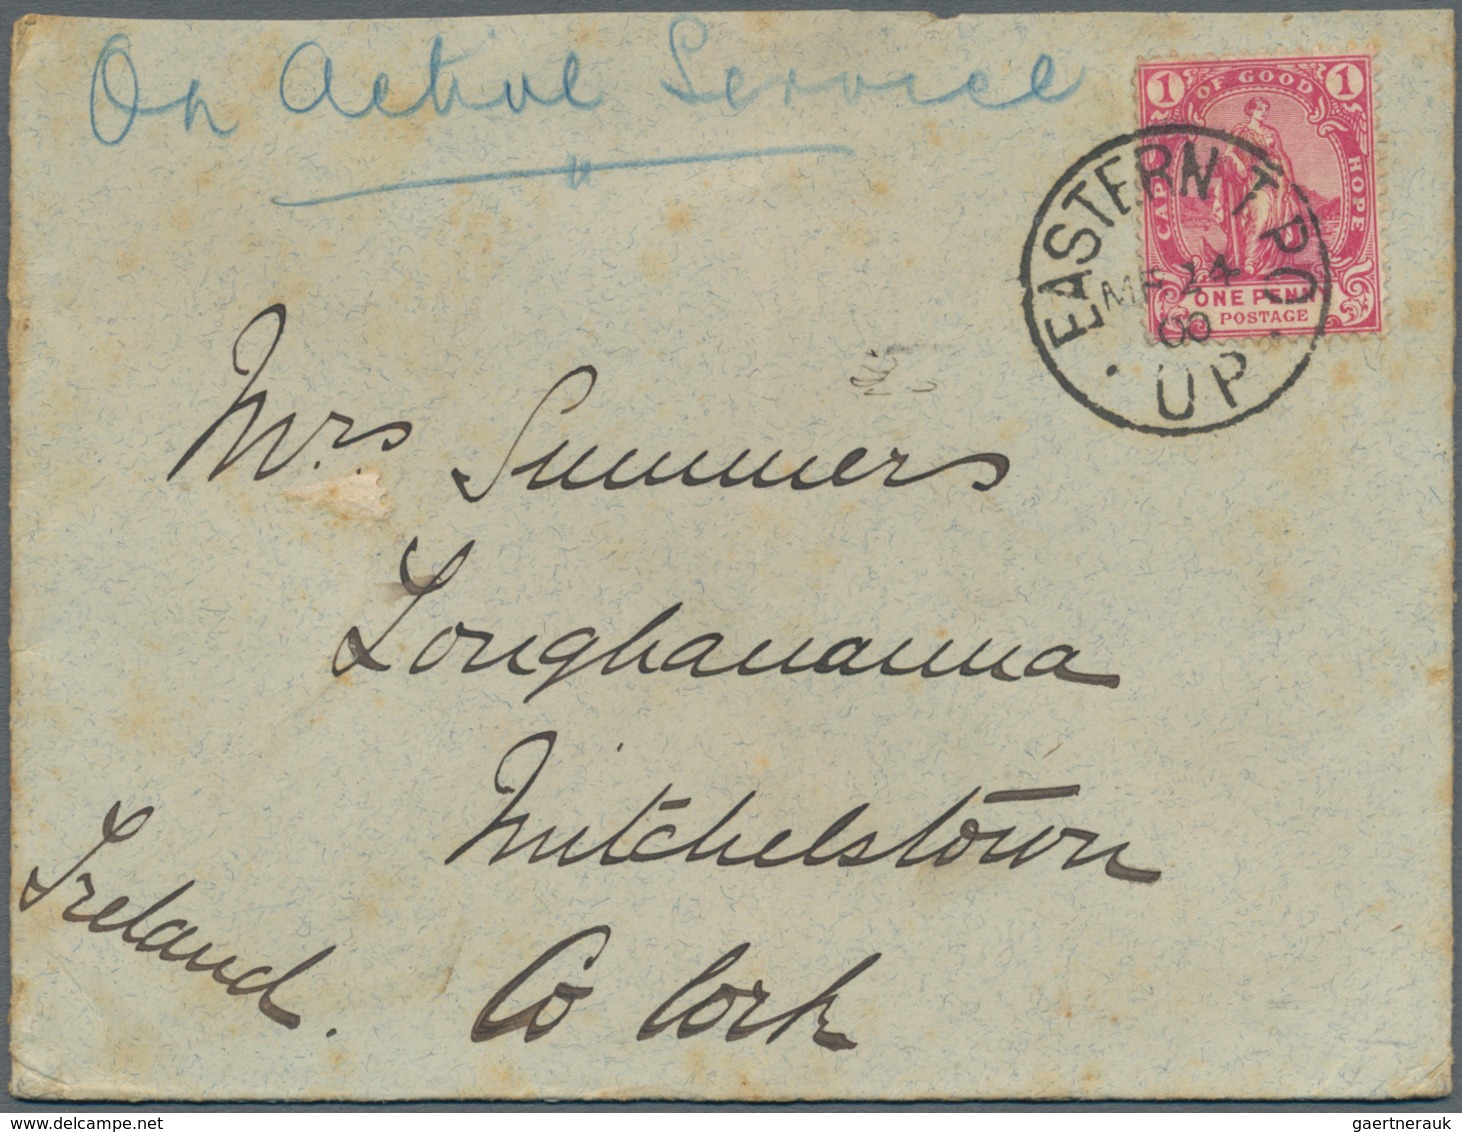 On Active Service
1 OF GOOD 1
CAPE HOPE
ONE PENNY
POSTAGE
EASTERN T.P.O.
MR 24
00
UP
Mrs Summers
Loughananna
Mitchelstown
Co Cork
Ireland.
gaertnerauk